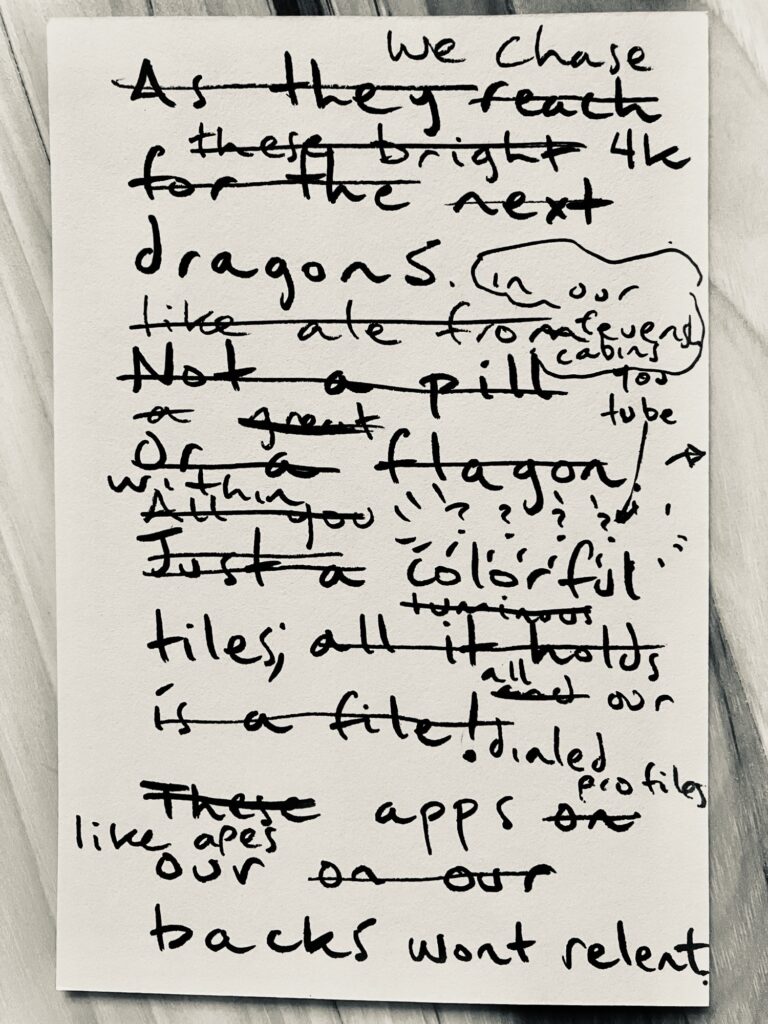 we chase
As they reach
these bright 4k
for the next
dragons.
in our
like ale from fevered
cabins
Not a pill you
a great tube
Or a flagon.
within
All you ? ? ? ?
Just a colorful
luminous
tiles; all it holds
all and our
is a file!
dialed
profiles
These apps on
like apes
our on our
backs wont relent.